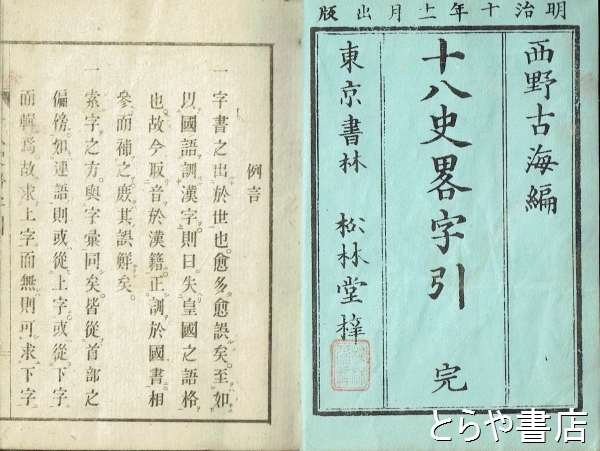 明治十年十一月出版
西野古海編
十八史畧字引 完
東京書林 松林堂梓
例言
一字書之出於世也。愈多愈誤矣。至如
以國語訓漢字則曰。失皇國之語格
也。故今取音於漢籍。正訓於國書。相
參而補之。庶其誤鮮矣。
一索字之方。與字彙同矣。皆從首部之
偏傍。如連語則或從上字。或從下字
而輯焉。故求上字而無則可求下字
とらや書店